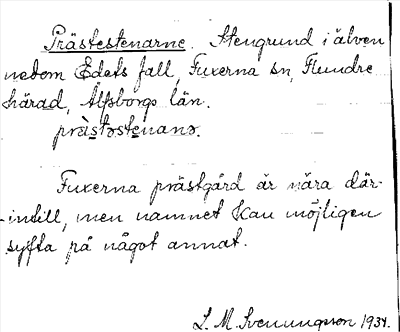 Prästestenarne. Stengrund i älven
nedom Edets fall, Fuxerna sn, Flundre
härad, Älfsborgs län.
prä̀stəstenanə.
Fuxerna prästgård är nära där-
intill, men namnet kan möjligen
syfta på något annat.
L. M. Svenungsson 1934.